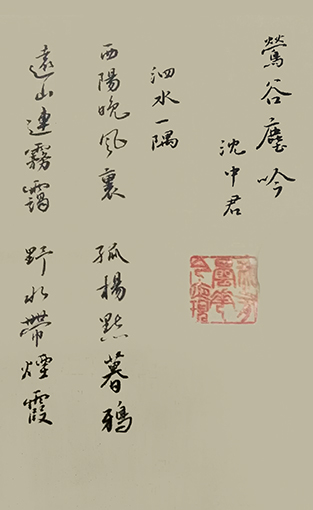 鶯谷塵吟
沈中君
泗水一隅
西陽晚風裏 孤楊點暮鴉
遠山連霧靄 野水帶煙霞